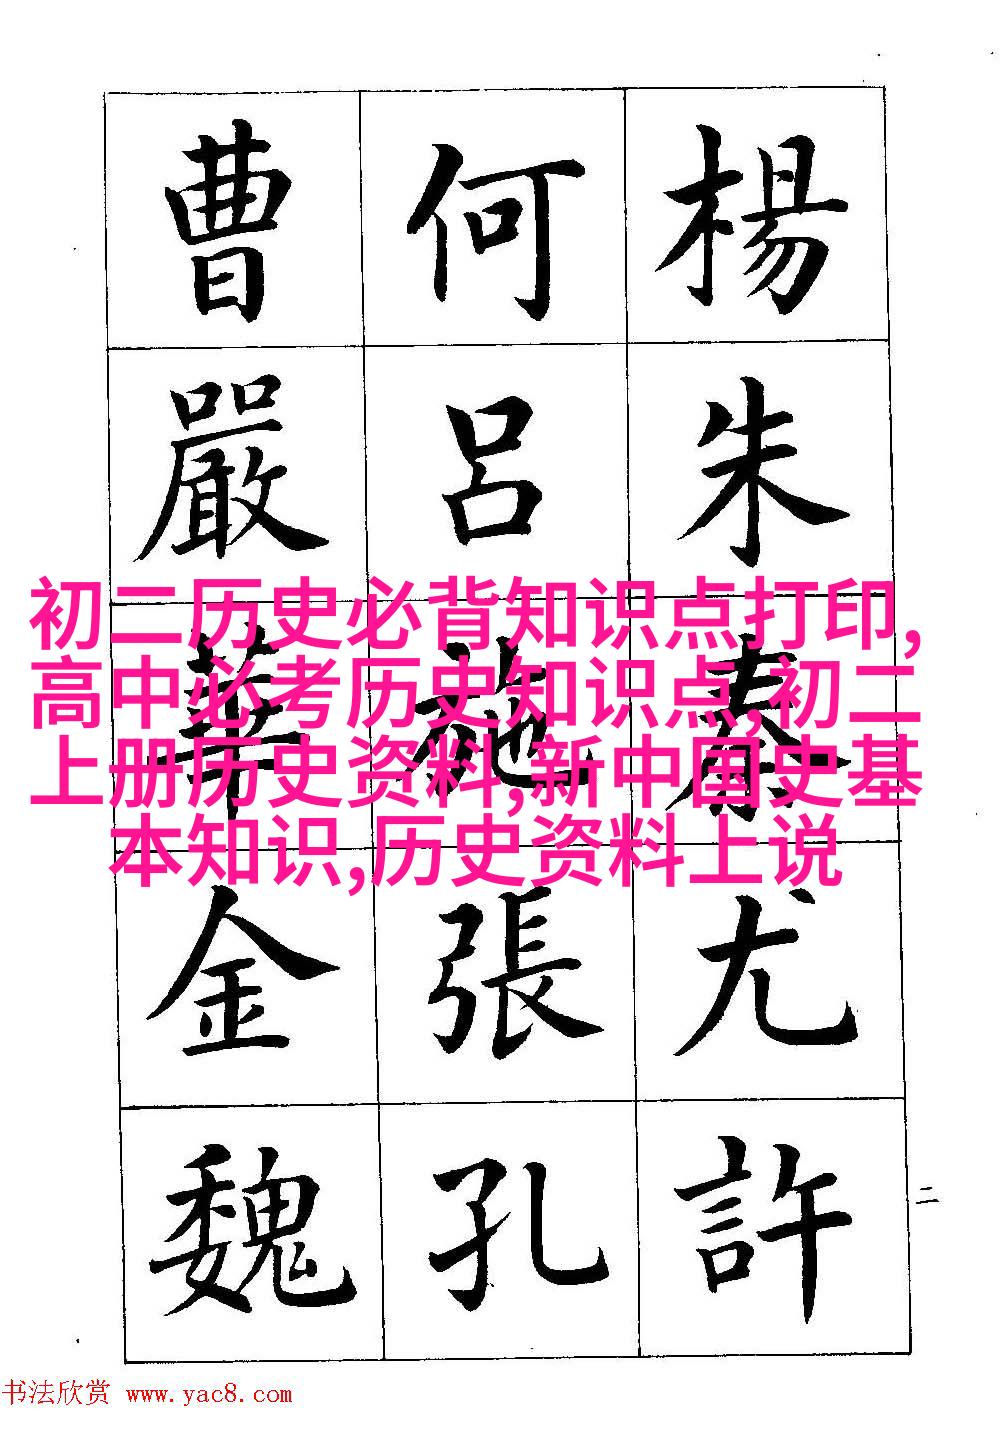 楊朱秦尤許
何呂施張孔
曹嚴華金魏
二
初二历史必背知识点打印,
高中必考历史知识点,初二
上册历史资料,新中国史基
本知识,历史资料上说
书法欣赏 www.yac8.com